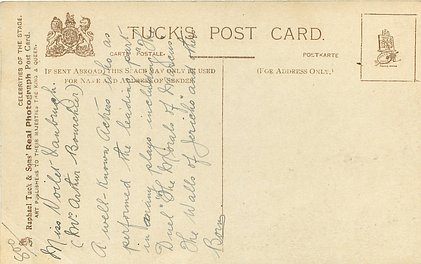 TUCK'S POST CARD.
CARTE POSTALE.
POSTKARTE
IF SENT ABROAD, THIS SPACE MAY ONLY BE USED
FOR NAME AND ADDRESS OF SENDER.
(FOR ADDRESS ONLY.)
CELEBRITIES OF THE STAGE.
Raphael Tuck & Sons' Real Photograph Post Card.
ART PUBLISHERS TO THEIR MAJESTIES THE KING & QUEEN.
Miss Violet Vanbrugh.
(Mrs Arthur Bourchier)
A well-known Actress who as
performed the leading part
in many plays including
Daniel "The Morals of Marcus"
"The Walls of Jericho" and other